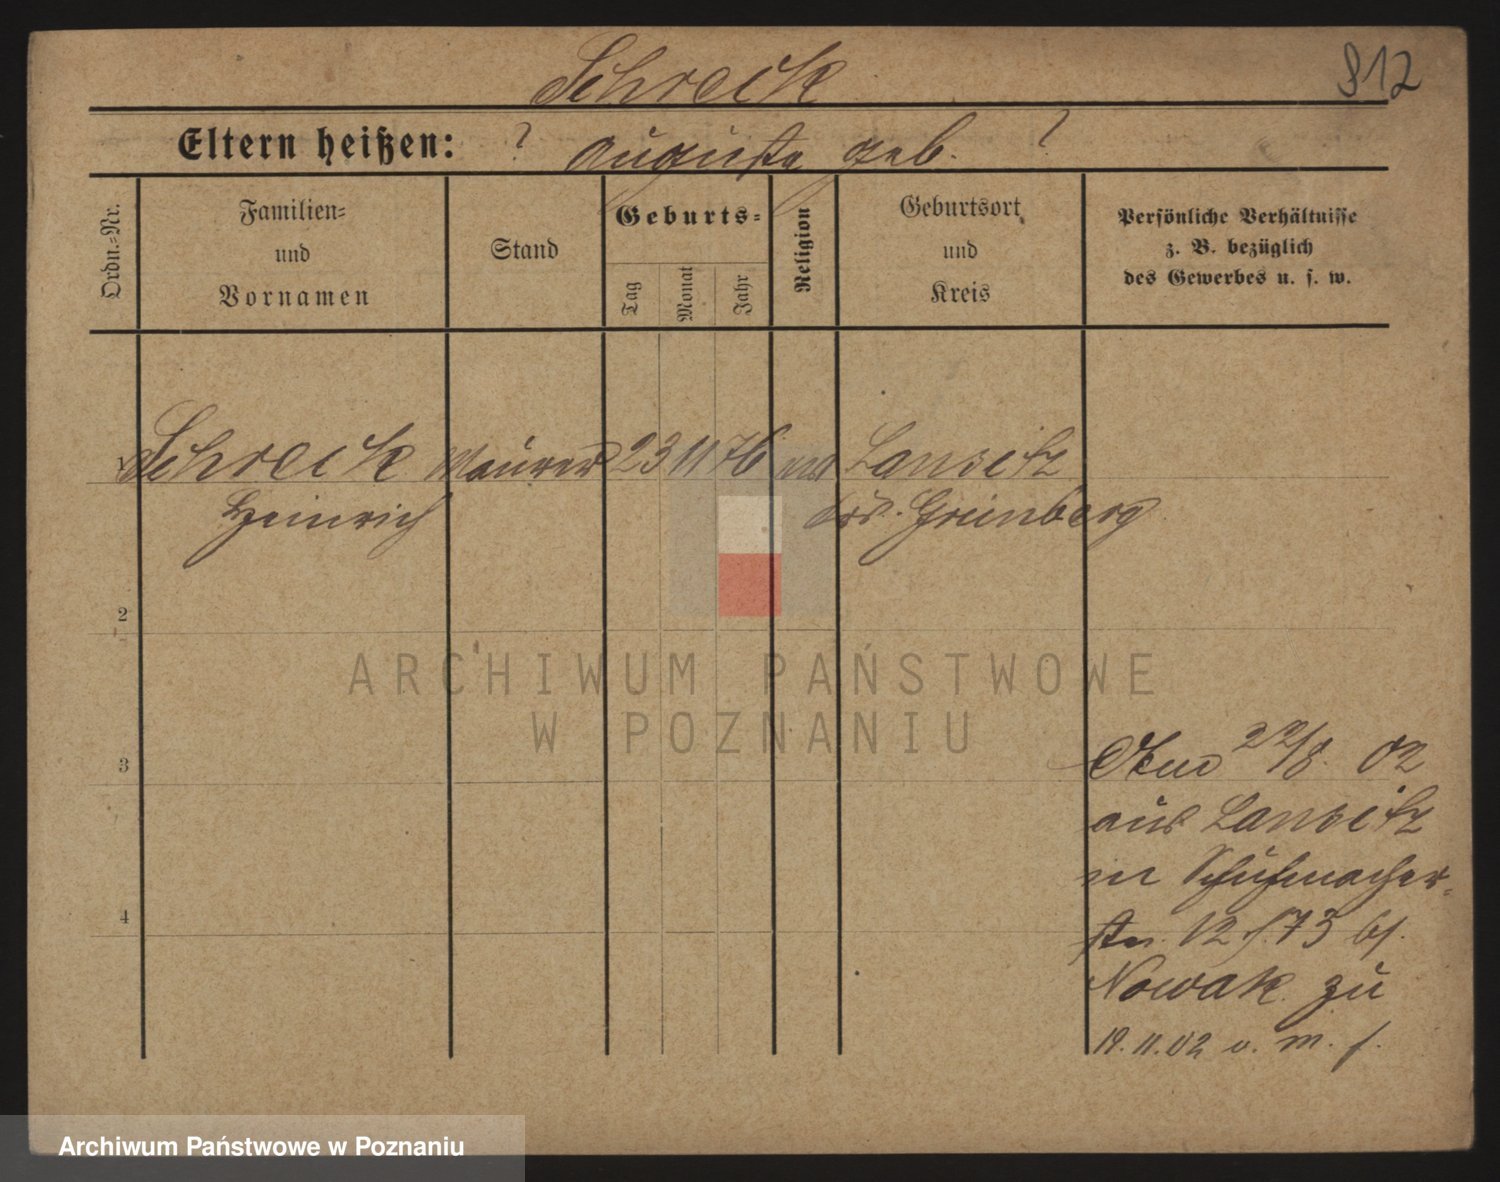 Schreck
812
Eltern heißen: ? Auguste geb. ?
Ordn.=Nr.
Familien=
und
Vornamen
Stand
Geburts=
Tag
Monat
Jahr
Religion
Geburtsort
und
Kreis
Persönliche Verhältnisse
z. B. bezüglich
des Gewerbes u. s. w.
1 Schreck Maurer 23 11 76 Lansitz
Heinrich Grünberg
2
3
4
22/8. 02
aus Lansitz
in Schuhmacher=
str. 12
Nowak zu
19.11.02
ARCHIWUM PAŃSTWOWE
W POZNANIU
Archiwum Państwowe w Poznaniu